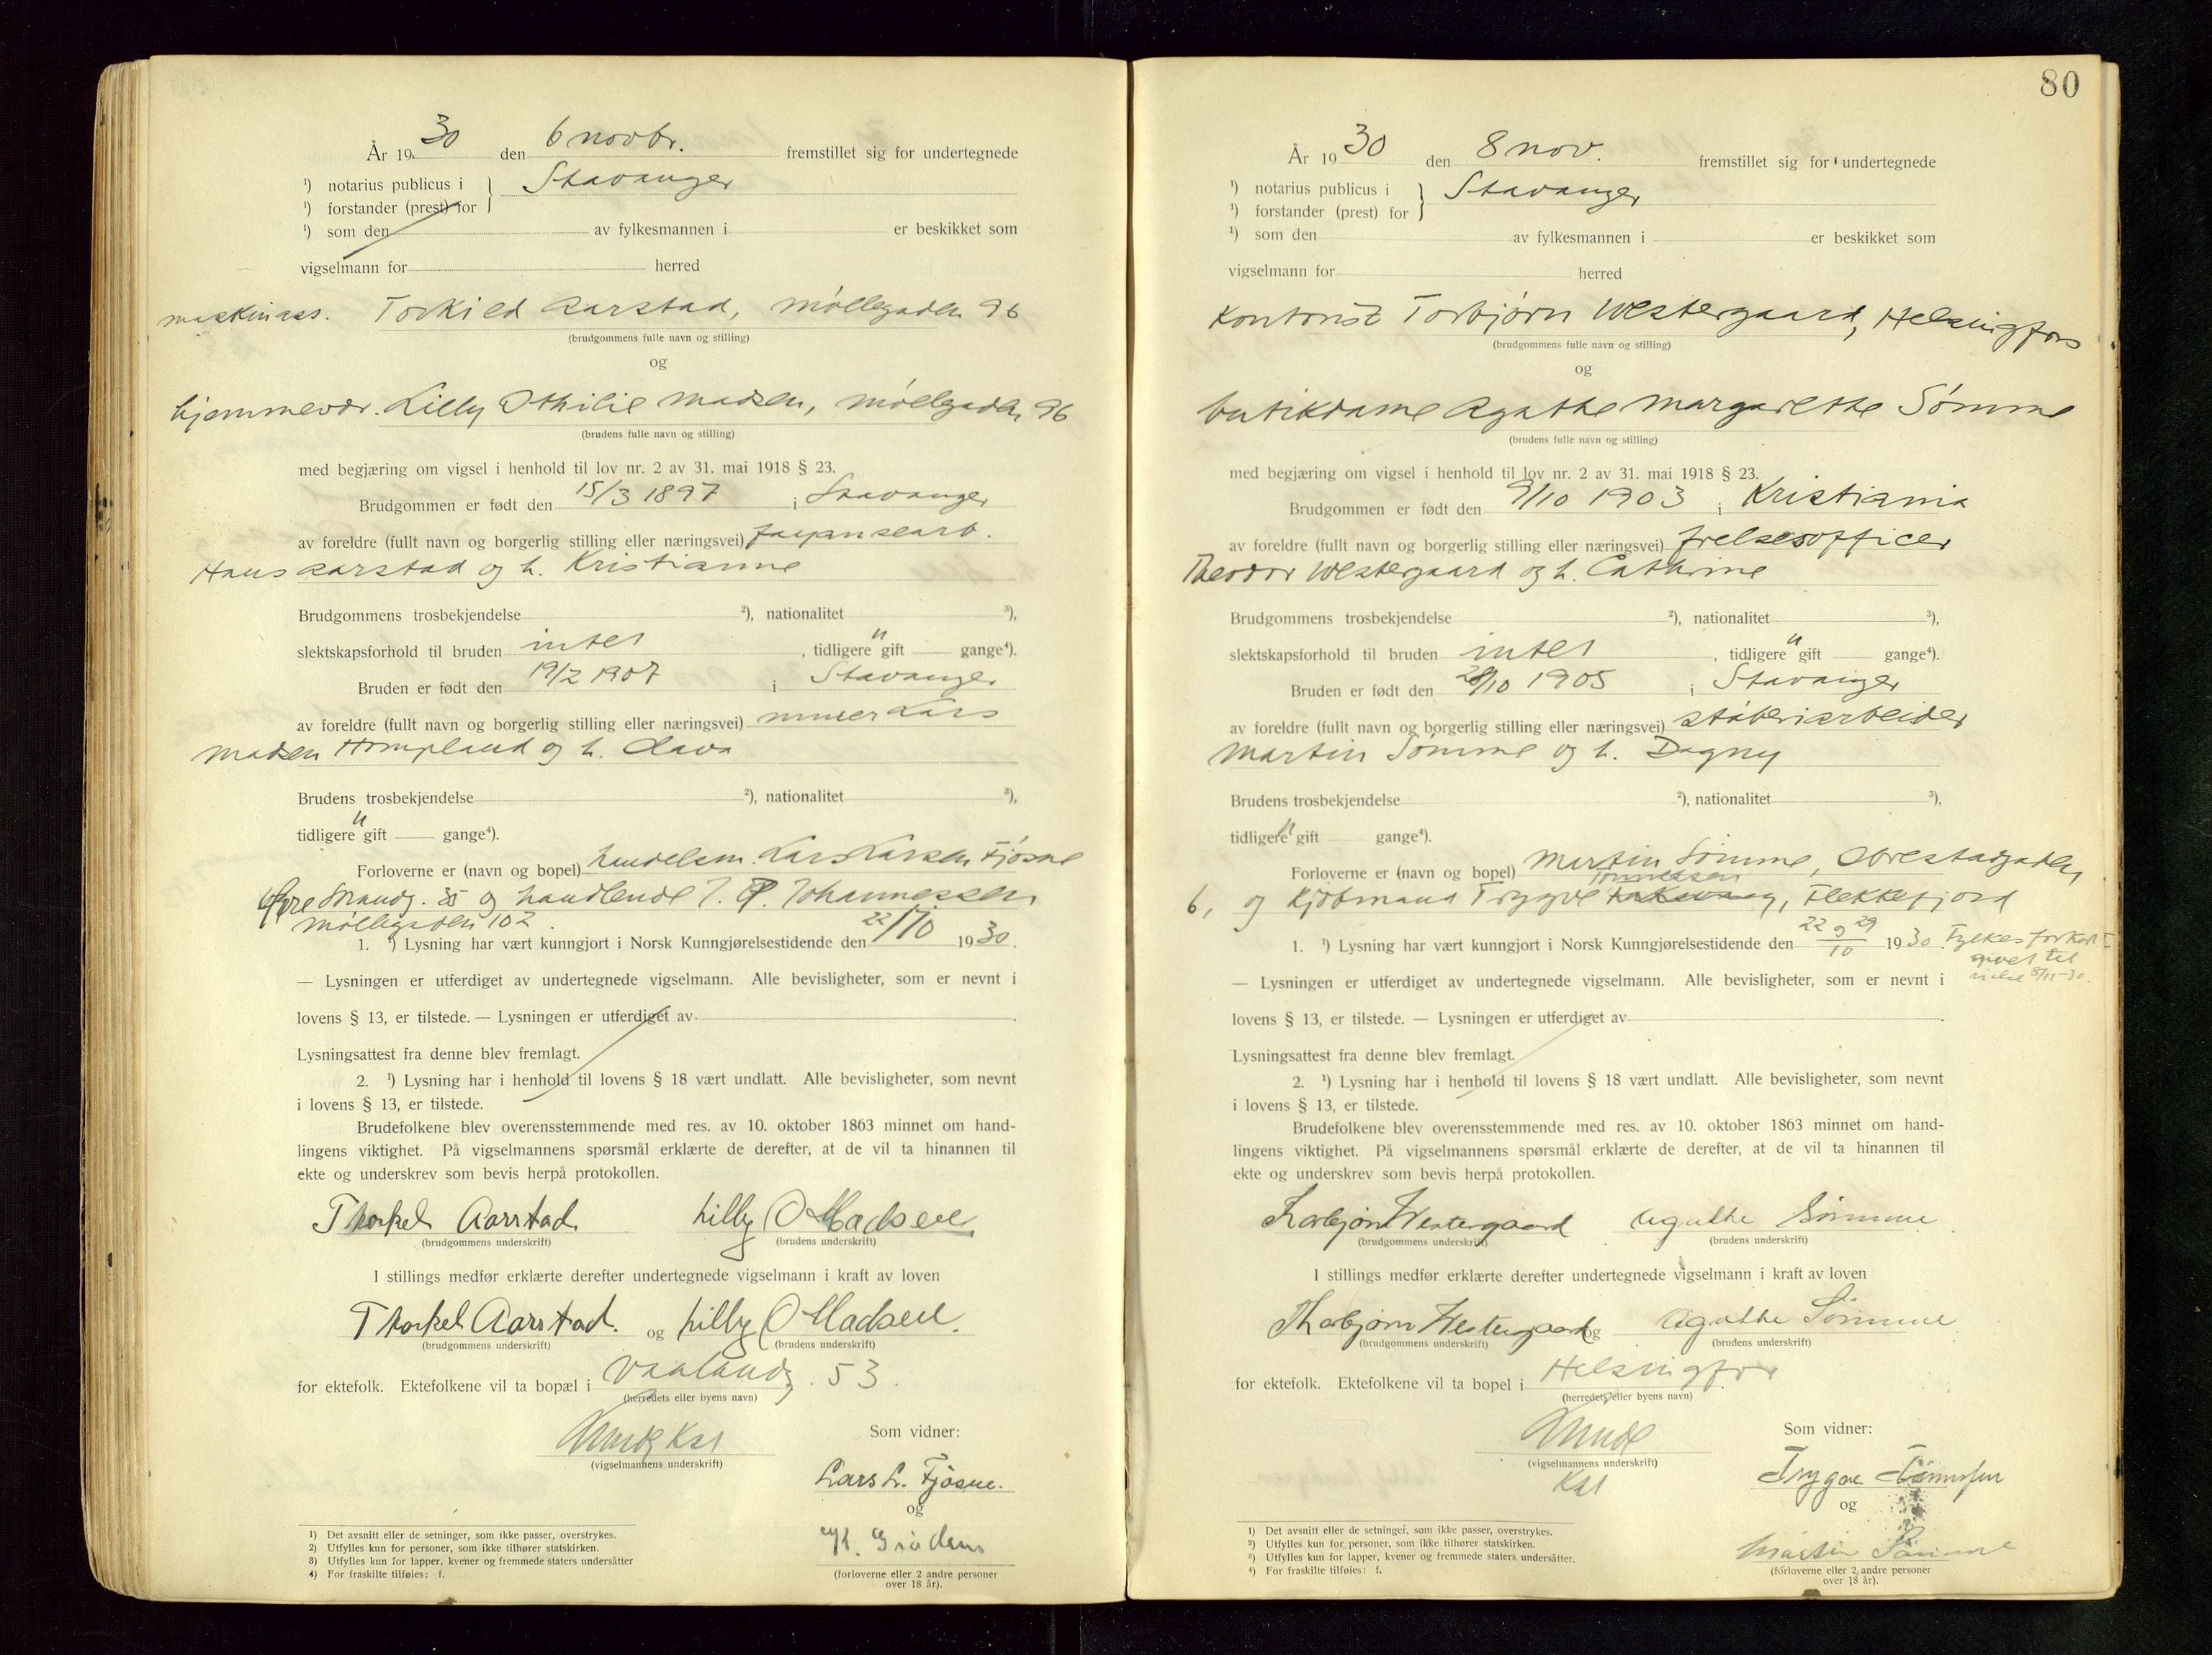 År 1930 den 6 novbr. fremstillet sig for undertegnede
¹) notarius publicus i } Stavanger
¹) forstander (prest) for
¹) som den av fylkesmannen i er beskikket som
vigselmann for herred
maskinass. Torkild Aarstad, Møllegaden 96
(brudgommens fulle navn og stilling)
og
hjemmevær. Lilly Othilie Madsen, Møllegaden 96
(brudens fulle navn og stilling)
med begjæring om vigsel i henhold til lov nr. 2 av 31. mai 1918 § 23.
Brudgommen er født den 15/3 1897 i Stavanger
av foreldre (fullt navn og borgerlig stilling eller næringsvei) fayansearb.
Hans Aarstad og h. Kristianne
Brudgommens trosbekjendelse ²), nationalitet ³),
slektskapsforhold til bruden intet, tidligere u gift gange⁴).
Bruden er født den 19/2 1907 i Stavanger
av foreldre (fullt navn og borgerlig stilling eller næringsvei) murer Lars
Madsen Hompland og h. Olava
Brudens trosbekjendelse ²), nationalitet ³),
tidligere u gift gange⁴).
Forloverne er (navn og bopel) handelsm. Lars Larsen Fjøsne
Øvre Strandg. 35 og handlende J. P. Johannessen
Møllegaden 102.
1. ¹) Lysning har vært kunngjort i Norsk Kunngjørelsestidende den 22/10 1930.
— Lysningen er utferdiget av undertegnede vigselmann. Alle bevisligheter, som er nevnt i
lovens § 13, er tilstede. — Lysningen er utferdiget av
Lysningsattest fra denne blev fremlagt.
2. ¹) Lysning har i henhold til lovens § 18 vært undlatt. Alle bevisligheter, som nevnt
i lovens § 13, er tilstede.
Brudefolkene blev overensstemmende med res. av 10. oktober 1863 minnet om hand-
lingens viktighet. På vigselmannens spørsmål erklærte de derefter, at de vil ta hinannen til
ekte og underskrev som bevis herpå protokollen.
Thorkel Aarstad. Lilly O Madsen.
(brudgommens underskrift) (brudens underskrift)
I stillings medfør erklærte derefter undertegnede vigselmann i kraft av loven
Thorkel Aarstad. og Lilly O Madsen.
(brudgommens underskrift) (brudens underskrift)
for ektefolk. Ektefolkene vil ta bopæl i Vaalandg. 53.
(herredets eller byens navn)
Som vidner:
(vigselmannens underskrift)
Lars L. Fjøsne.
og
(forloverne eller 2 andre personer
over 18 år).
1) Det avsnitt eller de setninger, som ikke passer, overstrykes.
2) Utfylles kun for personer, som ikke tilhører statskirken.
3) Utfylles kun for lapper, kvener og fremmede staters undersåtter
4) For fraskilte tilføies: f.
80
År 1930 den 8 nov. fremstillet sig for undertegnede
¹) notarius publicus i } Stavanger
¹) forstander (prest) for
¹) som den av fylkesmannen i er beskikket som
vigselmann for herred
Kontorist Torbjørn Westergaard, Helsingfors
(brudgommens fulle navn og stilling)
og
butikdame Agathe Margarethe Sømme
(brudens fulle navn og stilling)
med begjæring om vigsel i henhold til lov nr. 2 av 31. mai 1918 § 23.
Brudgommen er født den 9/10 1903 i Kristiania
av foreldre (fullt navn og borgerlig stilling eller næringsvei) frelsesofficer
Theodor Westergaard og h. Cathrine
Brudgommens trosbekjendelse ²), nationalitet ³),
slektskapsforhold til bruden intet, tidligere u gift gange⁴).
Bruden er født den 28/10 1905 i Stavanger
av foreldre (fullt navn og borgerlig stilling eller næringsvei) støberiarbeider
Martin Sømme og h. Dagny
Brudens trosbekjendelse ²), nationalitet ³),
tidligere u gift gange⁴).
Forloverne er (navn og bopel) Martin Sømme, Obrestadgaden
Tønnessen
6, og Kjøbmand Trygve Flekkefjord
1. ¹) Lysning har vært kunngjort i Norsk Kunngjørelsestidende den 22 og 29/10 1930. Fylkesforkort
givet til
vielse 8/11-30.
— Lysningen er utferdiget av undertegnede vigselmann. Alle bevisligheter, som er nevnt i
lovens § 13, er tilstede. — Lysningen er utferdiget av
Lysningsattest fra denne blev fremlagt.
2. ¹) Lysning har i henhold til lovens § 18 vært undlatt. Alle bevisligheter, som nevnt
i lovens § 13, er tilstede.
Brudefolkene blev overensstemmende med res. av 10. oktober 1863 minnet om hand-
lingens viktighet. På vigselmannens spørsmål erklærte de derefter, at de vil ta hinannen til
ekte og underskrev som bevis herpå protokollen.
Torbjørn Westergaard Agathe Sømme
(brudgommens underskrift) (brudens underskrift)
I stillings medfør erklærte derefter undertegnede vigselmann i kraft av loven
Thorbjørn Westergaard og Agathe Sömme
(brudgommens underskrift) (brudens underskrift)
for ektefolk. Ektefolkene vil ta bopel i Helsingfor
(herredets eller byens navn)
Som vidner:
(vigselmannens underskrift)
Trygve Tönnesen
og
Martin Sömme
(forloverne eller 2 andre personer
over 18 år).
1) Det avsnitt eller de setninger, som ikke passer, overstrykes.
2) Utfylles kun for personer, som ikke tilhører statskirken.
3) Utfylles kun for lapper, kvener og fremmede staters undersåtter.
4) For fraskilte tilføies: f.